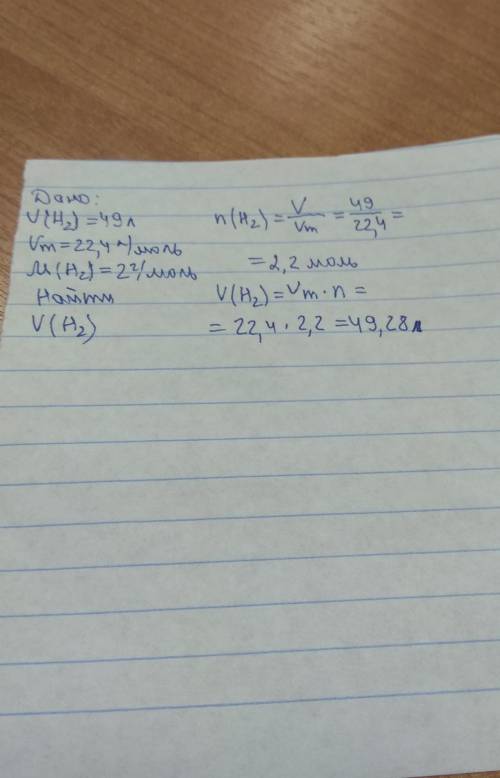 Дано:
V(H₂)=49л
Vm=22,4 л/моль
M(H₂)=2г/моль
Найти
V(H₂)
n(H₂)=V/Vm=49/22,4=
=2,2 моль
V(H₂)=Vm·n=
=22,4·2,2=49,28л